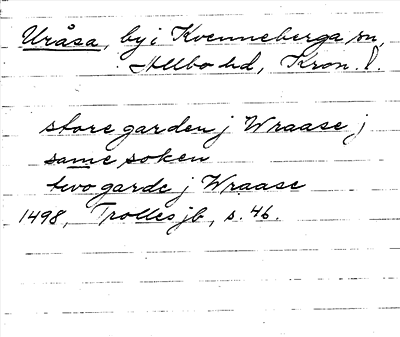 Uråsa, by i Kvenneberga sn,
Allbo hd, Kron. l.
store garden j Wraase j
same soken
two garde j Wraase
1498, Trolles jb, s. 46.